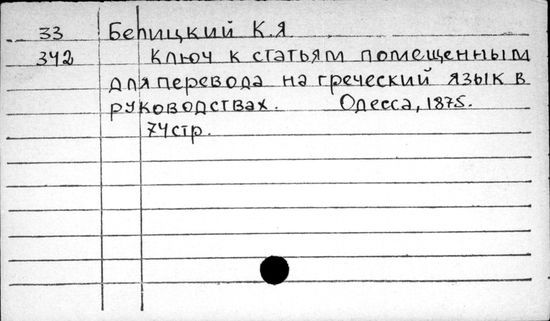 33 Белицкий К.Я
342 Ключ к статьям помещенным
для перевода на греческий язык в
руководствах. Одесса, 1875.
74стр.